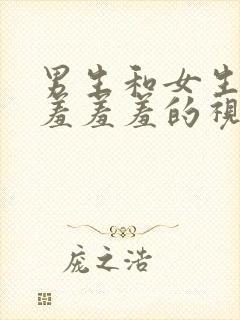 男生和女生
羞羞羞的視
庞之浩